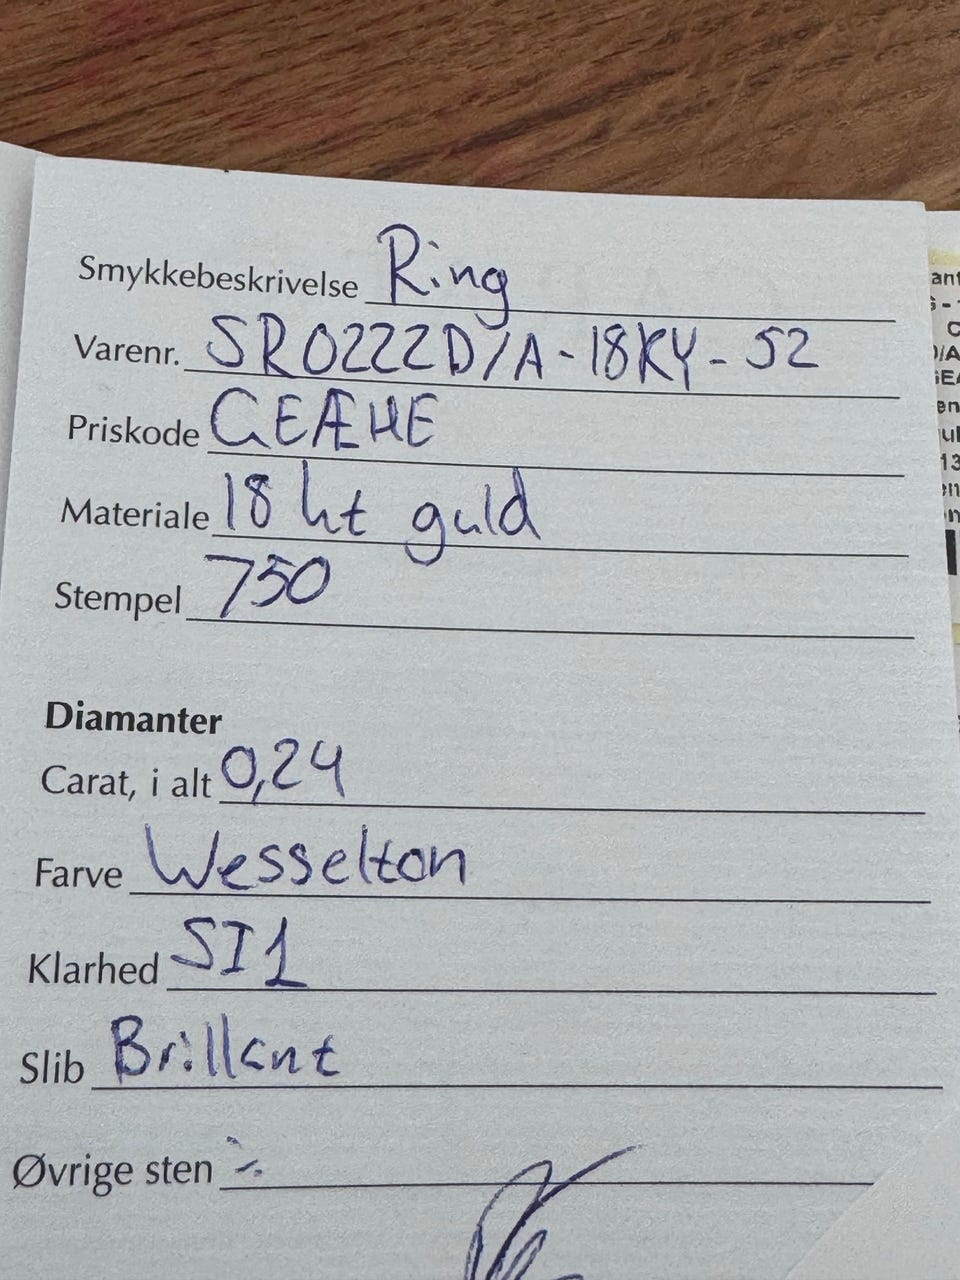 Smykkebeskrivelse Ring
Varenr. SR0222D/A-18KY-52
Priskode GEÆHE
Materiale 18 kt guld
Stempel 750
Diamanter
Carat, i alt 0,24
Farve Wesselton
Klarhed SI1
Slib Brillant
Øvrige sten